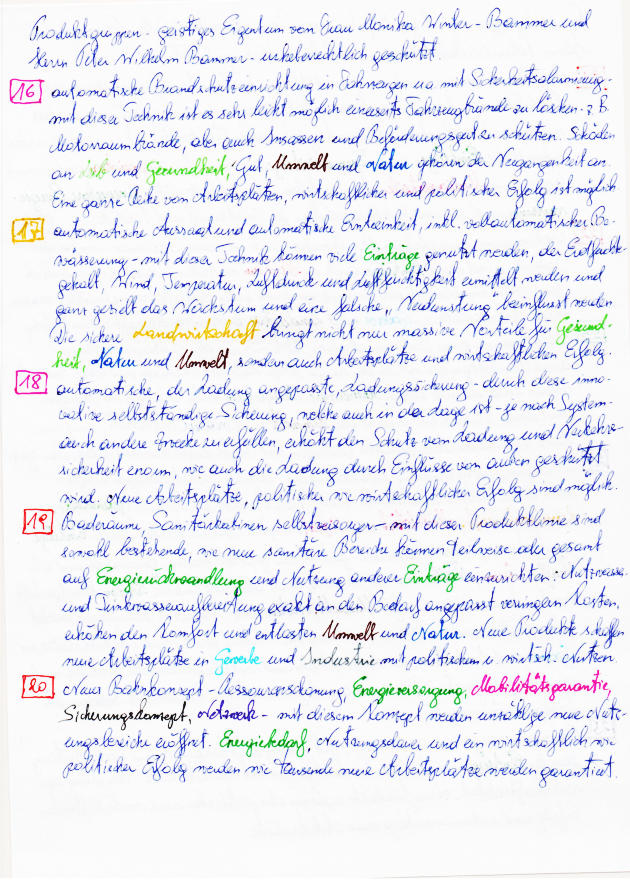 Produktgruppen - geistiges Eigentum von Frau Monika Winter-Bammer und
Herrn Peter Wilhelm Bammer - urheberrechtlich geschützt.
16 automatische Brandschutzeinrichtung in Fahrzeugen u.a. mit Sicherheitsalarmierung -
mit dieser Technik ist es sehr leicht möglich einerseits Fahrzeugbrände zu löschen - z.B.
Motorraumbrände, aber auch Insassen und Beförderungsgut zu schützen. Schäden
an Leib und Gesundheit, Gut, Umwelt und Natur gehören der Vergangenheit an.
Eine ganze Reihe von Arbeitsplätzen, wirtschaftlicher und politischer Erfolg ist möglich.
17 automatische Aussaat und automatische Erntearbeit, inkl. vollautomatischer Be-
wässerung - mit dieser Technik können viele Einträge genutzt werden, der Erdfeuchte-
gehalt, Wind, Temperatur, Luftdruck und Luftfeuchtigkeit ermittelt werden und
ganz gezielt das Wachstum und eine falsche „Verdunstung" beeinflusst werden
Die sichere Landwirtschaft bringt nicht nur massive Vorteile für Gesund-
heit, Natur und Umwelt, sondern auch Arbeitsplätze und wirtschaftlichen Erfolg.
18 automatische, der Ladung angepasste, Ladungssicherung - durch diese inno-
vative selbstständige Sicherung, welche auch in der Lage ist - je nach System -
auch andere Zwecke zu erfüllen, erhöht den Schutz von Ladung und Verkehrs-
sicherheit enorm, wie auch die Ladung durch Einflüsse von außen geschützt
wird. Neue Arbeitsplätze, politischer wie wirtschaftlicher Erfolg sind möglich.
19 Baderäume, Sanitärkabinen selbstversorger - mit dieser Produktlinie sind
sowohl bestehende, wie neue sanitäre Bereiche können teilweise oder gesamt
auf Energierückwandlung und Nutzung anderer Einträge einzurichten: Nutzwasser-
und Trinkwasseraufbereitung exakt an den Bedarf angepasst verringern Kosten,
erhöhen den Komfort und entlasten Umwelt und Natur. Neue Produkte schaffen
neue Arbeitsplätze in Gewerbe und Industrie mit politischem u. wirtsch. Nutzen.
20 Neues Bahnkonzept - Ressourcenschonung, Energieversorgung, Mobilitätsgarantie,
Sicherungskonzept, Netzwerk - mit diesem Konzept werden unzählige neue Nutz-
ungsbereiche eröffnet. Energiebedarf, Nutzungsdauer und ein wirtschaftlich wie
politischer Erfolg werden wie Tausende neue Arbeitsplätze werden garantiert.